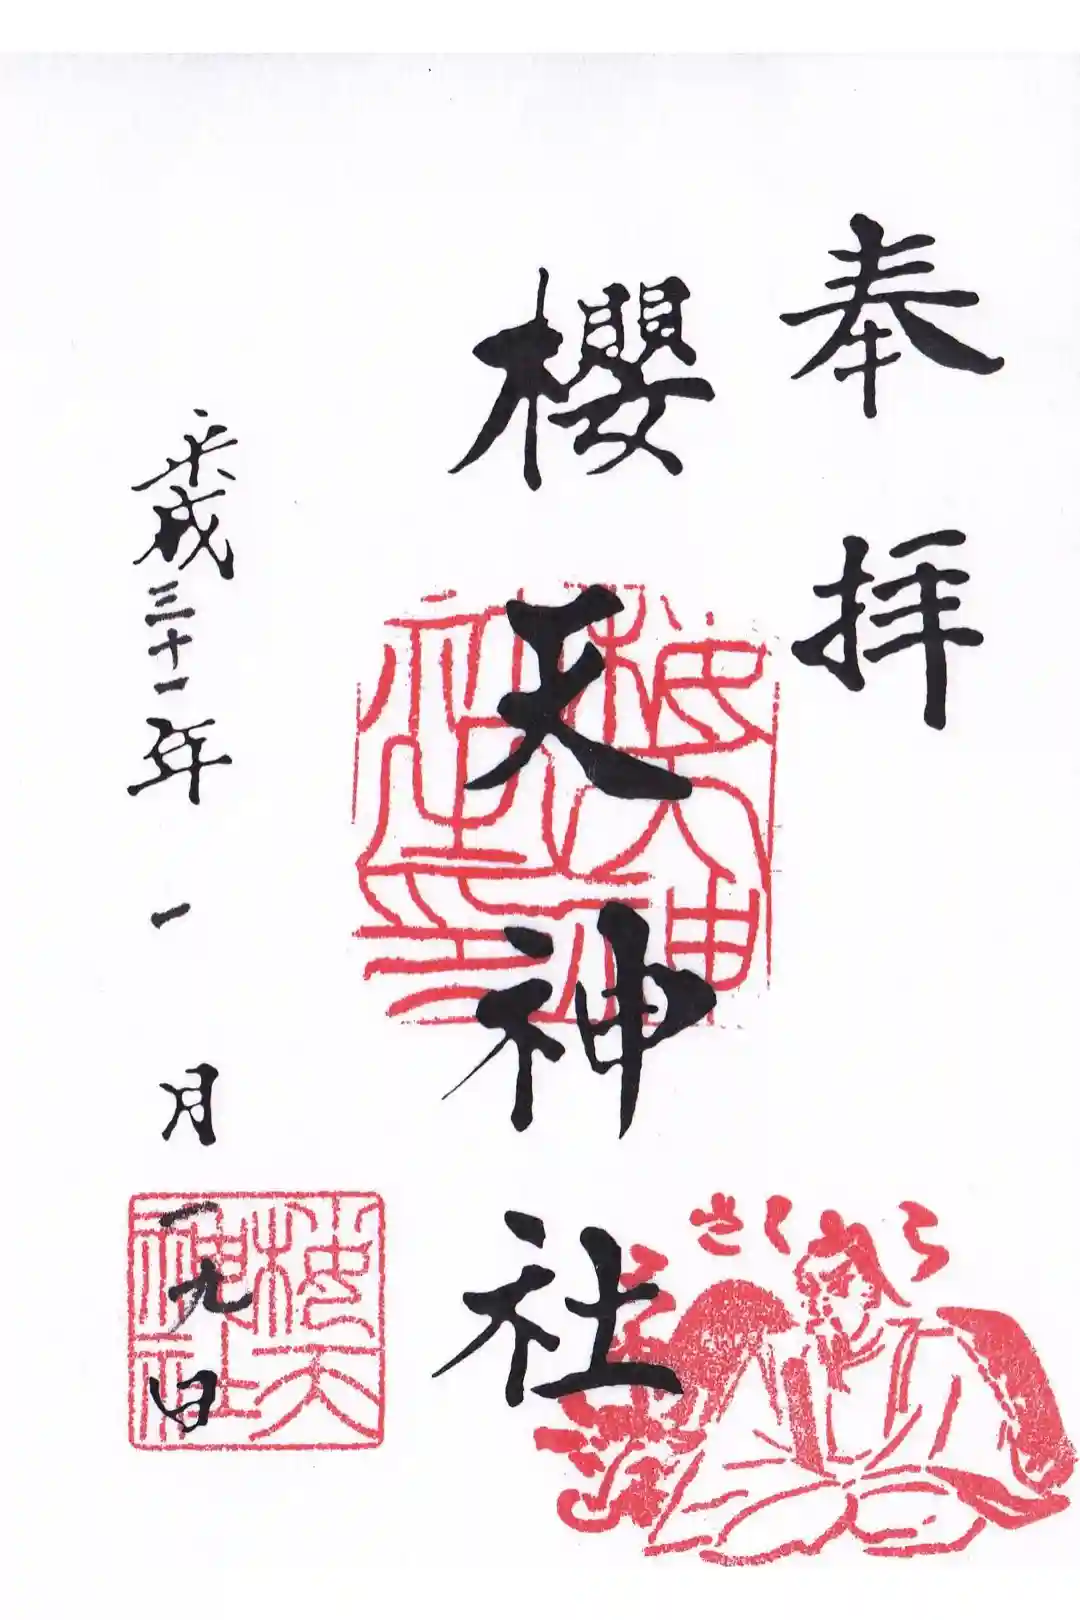 奉拝
櫻天神社
平成三十一年 一月一九日
櫻天神社
さくら